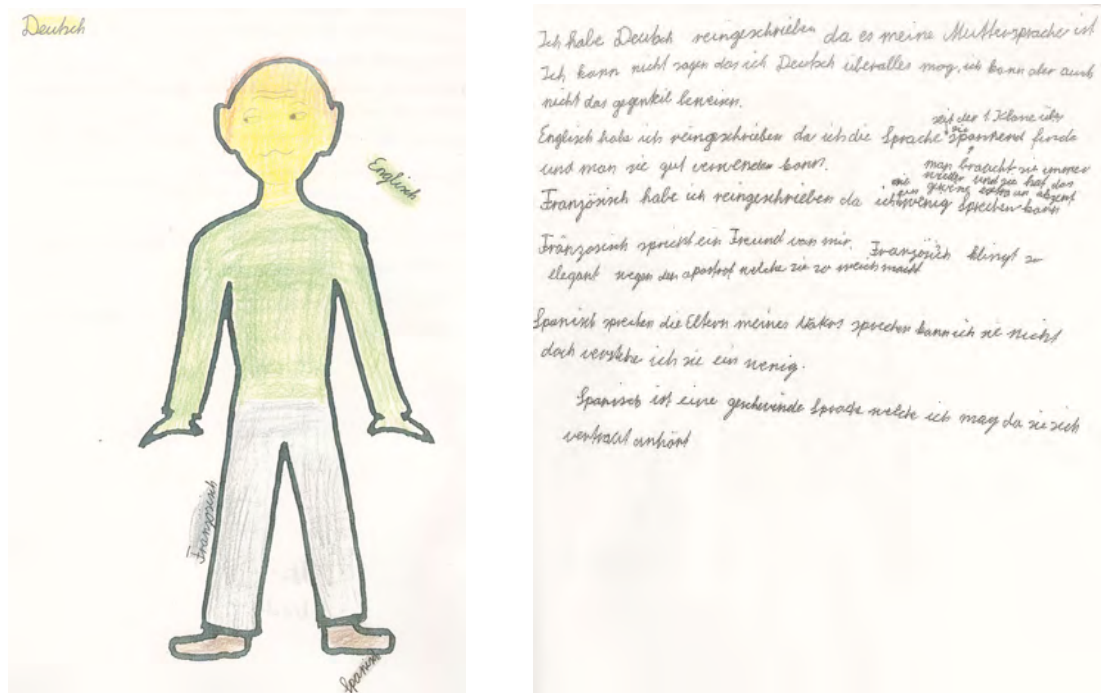 Deutsch
Englisch
Französisch
Spanisch
Ich habe Deutsch reingeschrieben da es meine Muttersprache ist
Ich kann nicht sagen das ich Deutsch überalles mag, ich kann aber auch
nicht das gegenteil beweisen.
seit der 1 Klasse übe
Englisch habe ich reingeschrieben da ich die Sprache spannend finde
und man sie gut verwenden kann.
man braucht sie immer
wieder und sie hat das
gewisse extra an akzent
Französisch habe ich reingeschrieben da ich wenig sprechen kann
Französisch spricht ein Freund von mir. Französisch klingt so
elegant wegen den apostrof welche sie so weich macht
Spanisch sprechen die Eltern meines sprechen kann ich sie nicht
doch verstehe ich sie ein wenig.
Spanisch ist eine Sprache welche ich mag da sie sich
vertraut anhört